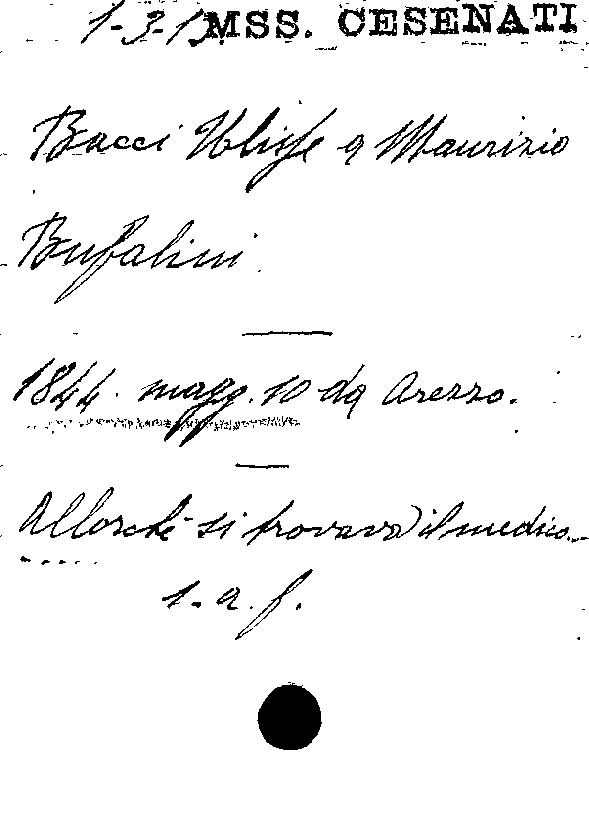 1-3-13 MSS. CESENATI
Bacci Ulisse a Maurizio
Bufalini.
1844. magg. 10 da Arezzo.
Allorchè si trovava il medico...
1. a. f.